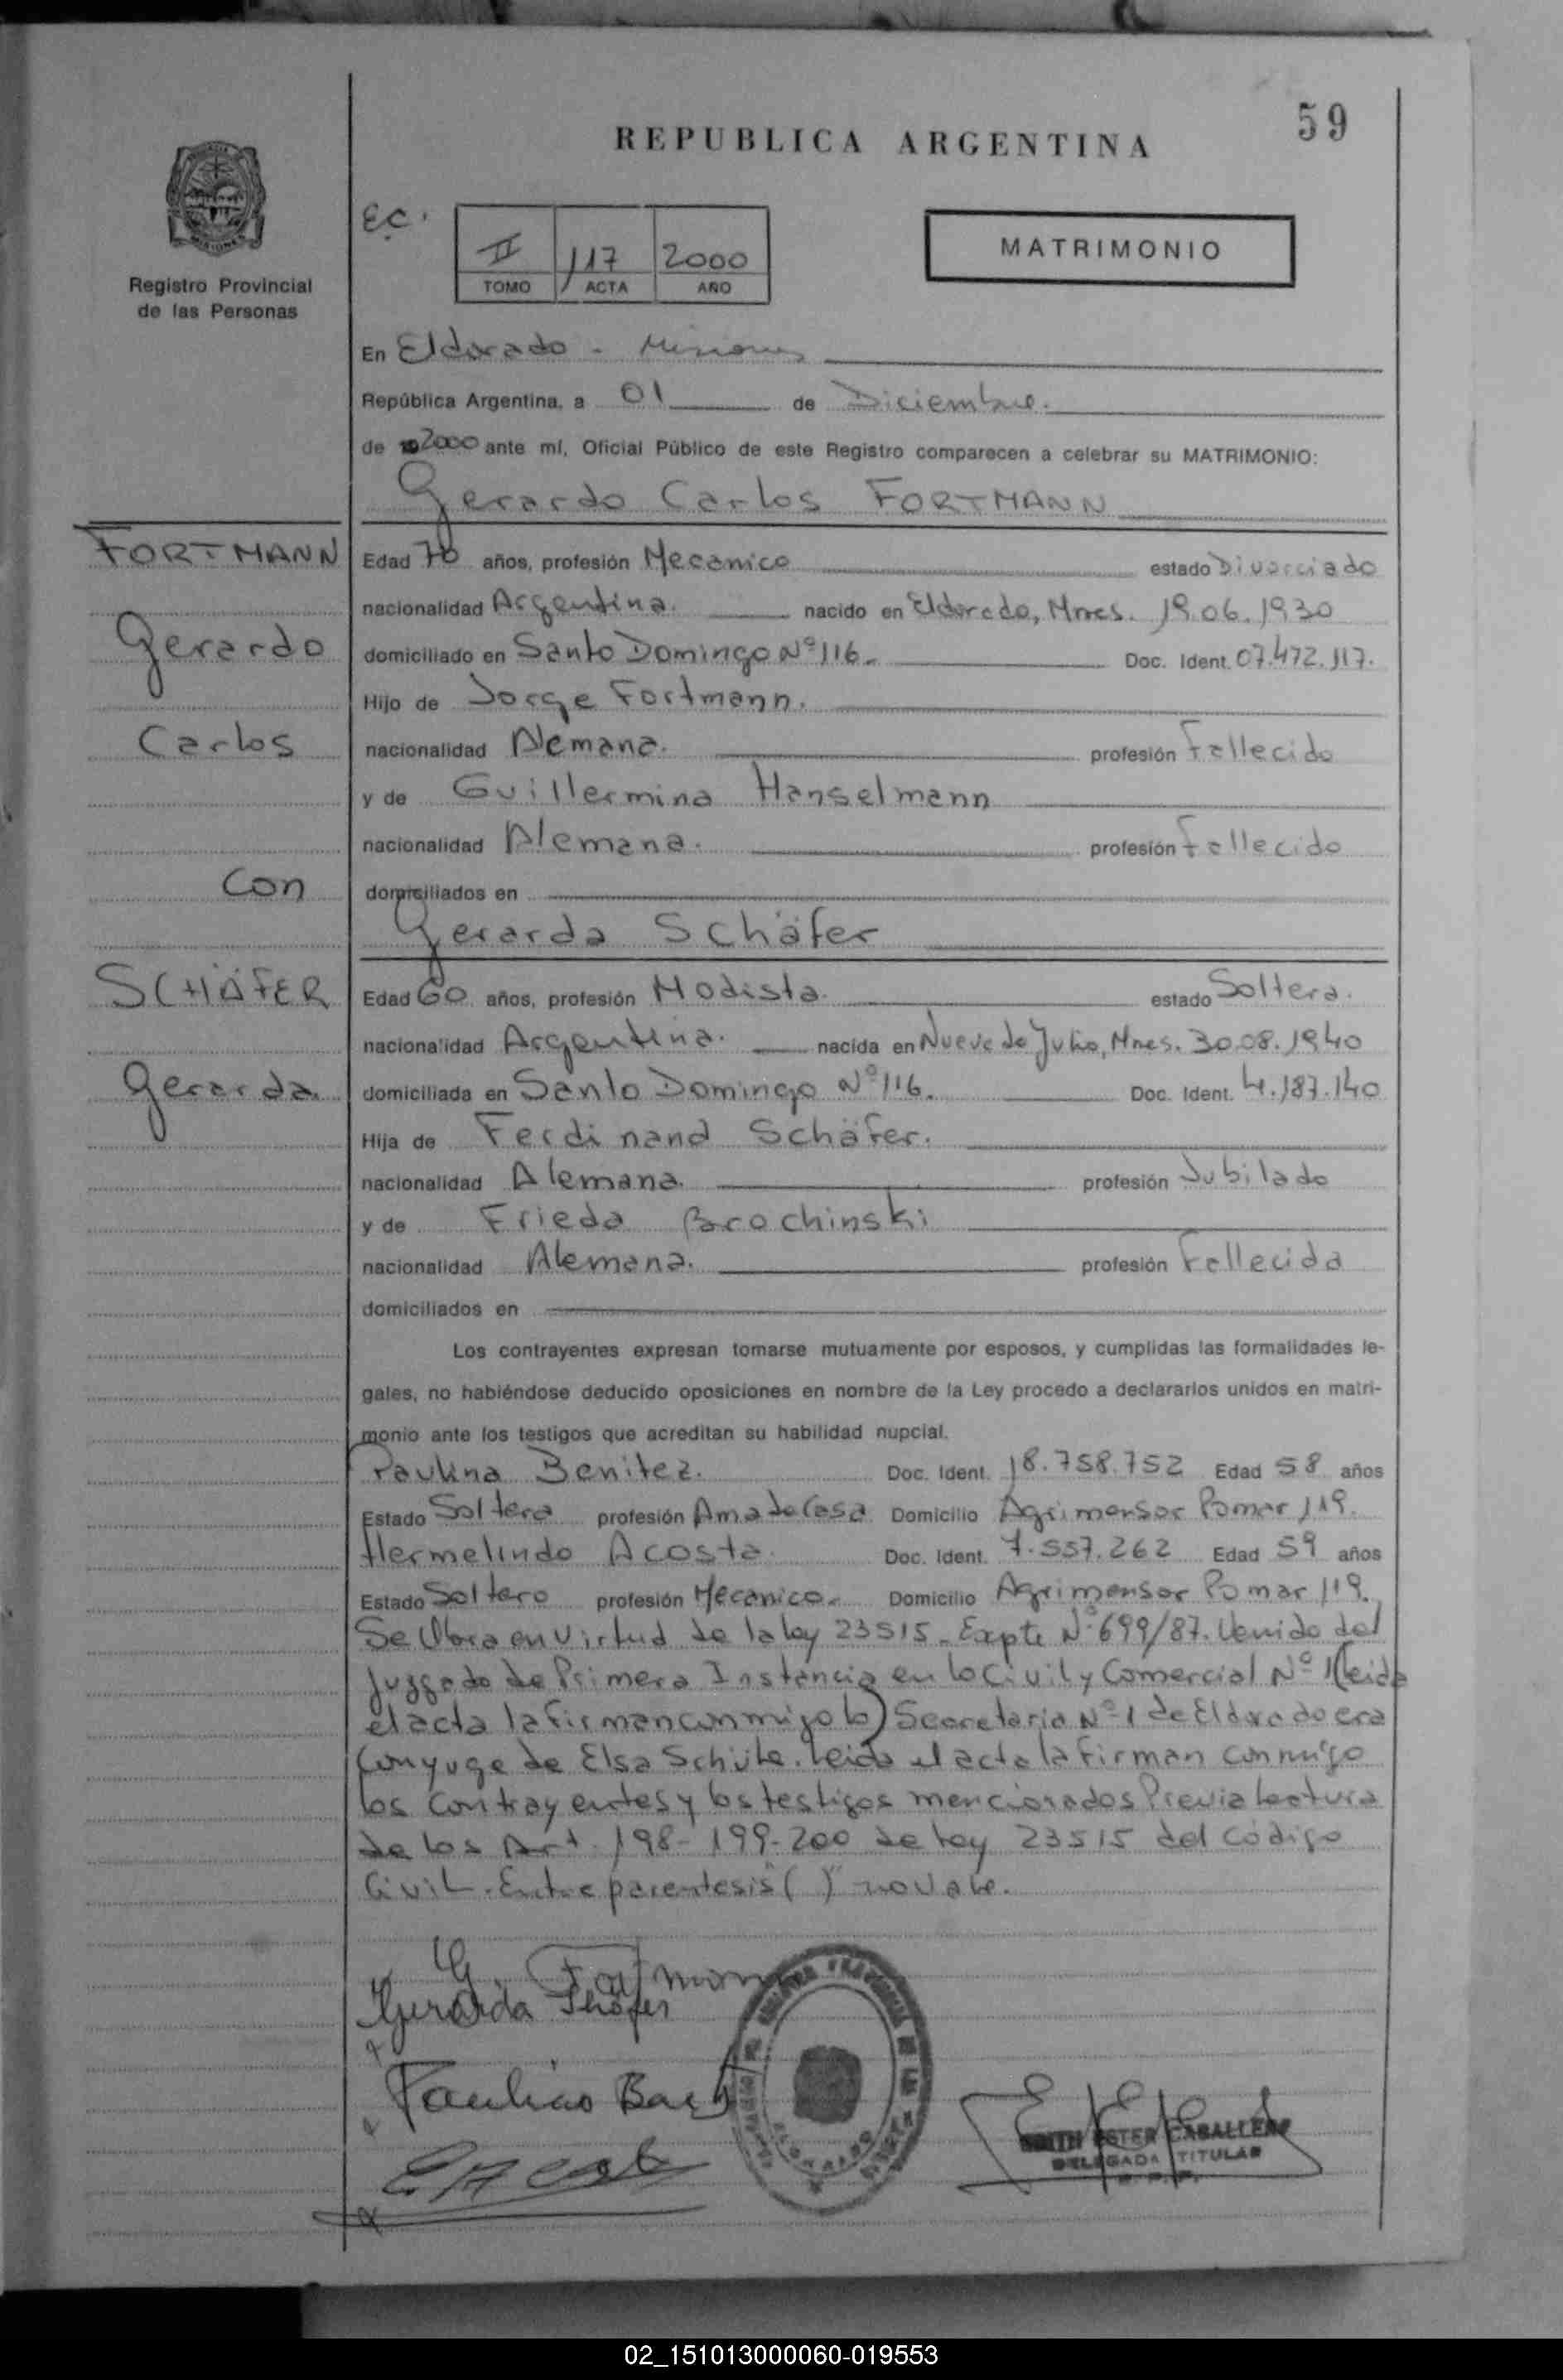 59
REPUBLICA ARGENTINA
E.C.
II 117 2000
TOMO ACTA AÑO
MATRIMONIO
Registro Provincial
de las Personas
En Eldorado - Misiones
República Argentina, a 01 de Diciembre.
de 2000 ante mí, Oficial Público de este Registro comparecen a celebrar su MATRIMONIO:
Gerardo Carlos FORTMANN
FORTMANN
Gerardo
Carlos
Con
SCHÄFER
Gerarda.
Edad 70 años, profesión Mecanico estado Divorciado
nacionalidad Argentina. nacido en Eldorado, Mnes. 19.06.1930
domiciliado en Santo Domingo Nº 116. Doc. Ident. 07.472.117.
Hijo de Jorge Fortmann.
nacionalidad Alemana. profesión Fallecido
y de Guillermina Hanselmann
nacionalidad Alemana. profesión Fallecido
domiciliados en
Gerarda Schäfer
Edad 60 años, profesión Modista. estado Soltera.
nacionalidad Argentina. nacida en Nueve de Julio, Mnes. 30.08.1940
domiciliada en Santo Domingo Nº 116. Doc. Ident. 4.187.140
Hija de Ferdinand Schäfer.
nacionalidad Alemana. profesión Jubilado
y de Frieda Brochinski
nacionalidad Alemana. profesión Fallecida
domiciliados en
Los contrayentes expresan tomarse mutuamente por esposos, y cumplidas las formalidades le-
gales, no habiéndose deducido oposiciones en nombre de la Ley procedo a declararlos unidos en matri-
monio ante los testigos que acreditan su habilidad nupcial.
Paulina Benitez. Doc. Ident. 18.758.752 Edad 58 años
Estado Soltera profesión Ama de Casa Domicilio Agrimensor Pomar 119.
Hermelindo Acosta. Doc. Ident. 7.557.262 Edad 59 años
Estado Soltero profesión Mecanico. Domicilio Agrimensor Pomar 119.
Se Obra en Virtud de la ley 23515. Expte Nº 699/87. Venido del
Juzgado de Primera Instancia en lo Civil y Comercial Nº 1 (leida
el acta la firman conmigo lo) Secretaria Nº 1 de Eldorado era
Conyuge de Elsa Schüte. Leida el acta la firman conmigo
los Contrayentes y los testigos mencionados Previa lectura
de los Art. 198-199-200 de ley 23515 del Código
Civil. Entre parentesis "( )" no vale.
G. Fortmann
Gerarda Schäfer
EDITH ESTER CABALLERO
DELEGADA TITULAR
R. P. P.
02_151013000060-019553